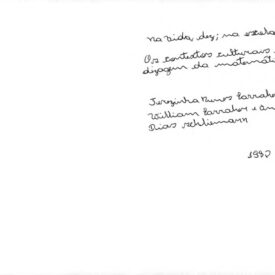 na vida, dez; na escola
Os contextos culturais
dizagem da matemáti
Terezinha Nunes Carraher
William Carraher e An
Dias Schliemann
1982